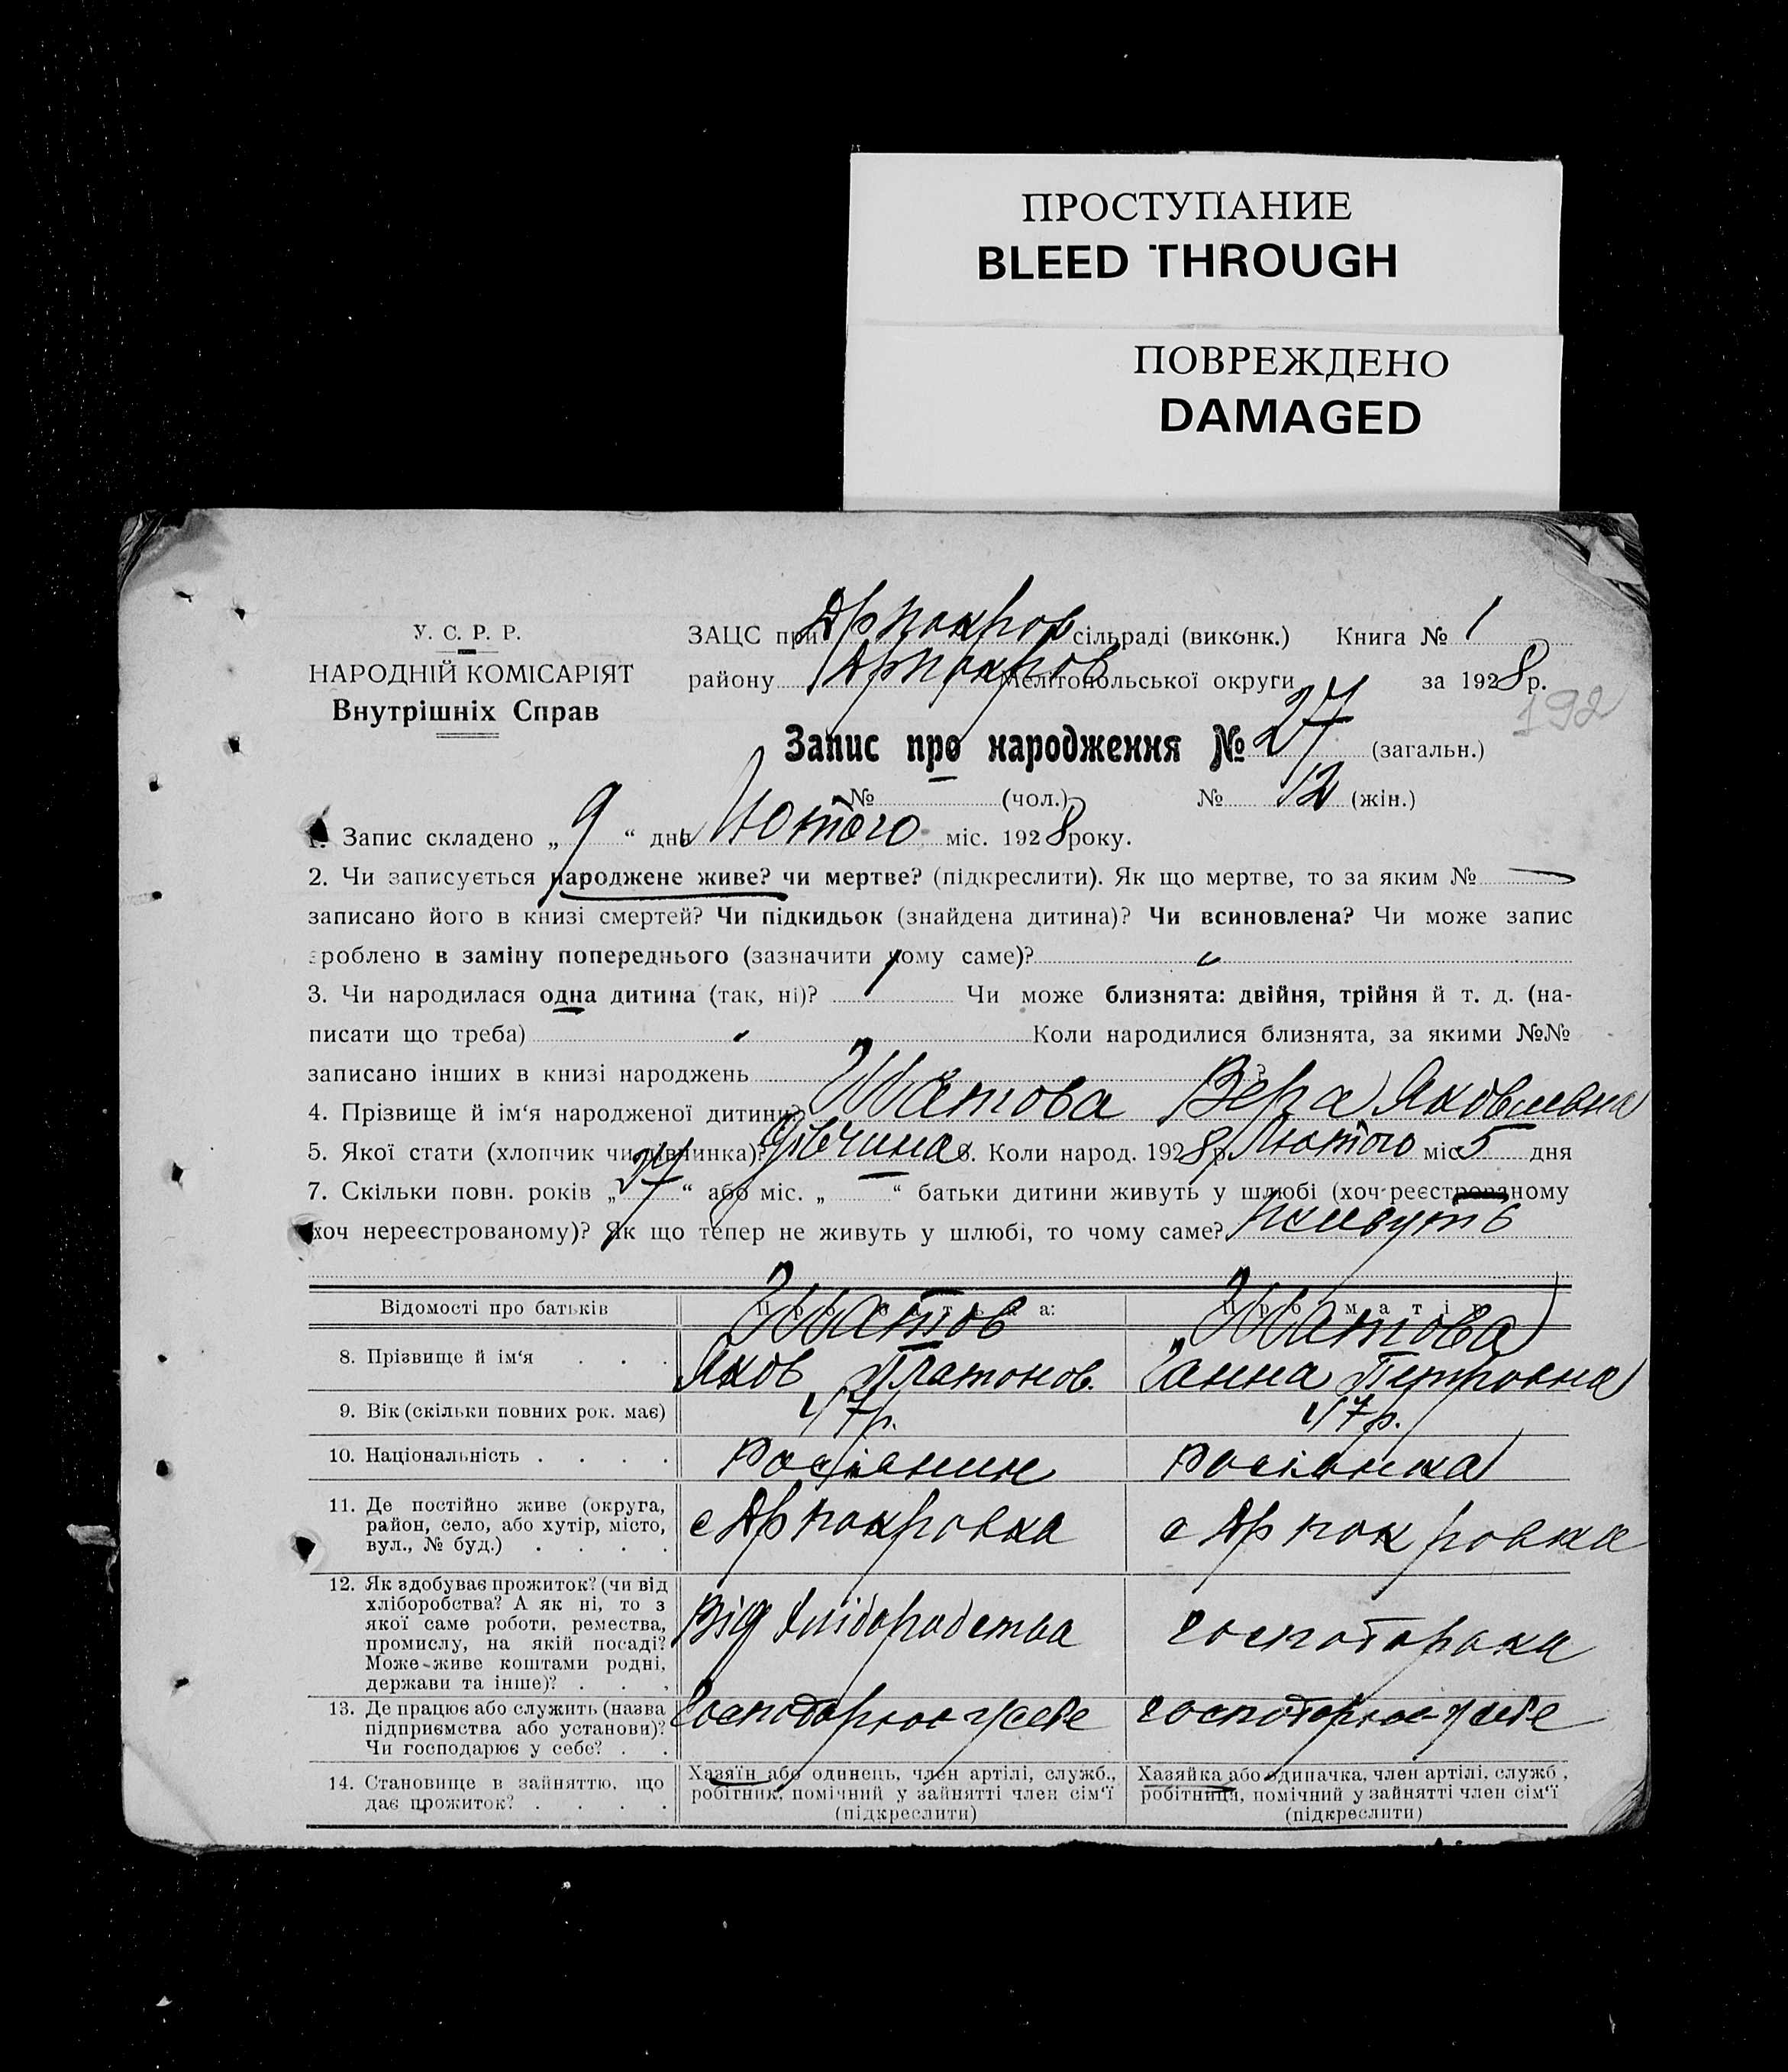 ПРОСТУПАНИЕ
BLEED THROUGH
ПОВРЕЖДЕНО
DAMAGED
У. С. Р. Р.
НАРОДНІЙ КОМІСАРІЯТ
Внутрішніх Справ
ЗАЦС при Ярпокров сільраді (виконк.) Книга № 1
району Мелітопольської округи за 1928 р.
192
Запис про народження № 27 (загальн.)
№ (чол.) № 12 (жін.)
1. Запис складено „ 9 “ дня Лютого міс. 1928 року.
2. Чи записується народжене живе? чи мертве? (підкреслити). Як що мертве, то за яким № —
записано його в книзі смертей? Чи підкидьок (знайдена дитина)? Чи всиновлена? Чи може запис
зроблено в заміну попереднього (зазначити чому саме)?
3. Чи народилася одна дитина (так, ні)? Чи може близнята: двійня, трійня й т. д. (на-
писати що треба) Коли народилися близнята, за якими №№
записано інших в книзі народжень ?
4. Прізвище й ім‘я народженої дитини? Шатова Вера Яковлевна
5. Якої стати (хлопчик чи дівчинка)? Дівчина 6. Коли народ. 1928 р. Лютого міс. 5 дня
7. Скільки повн. років „ “ або міс. „ — “ батьки дитини живуть у шлюбі (хоч реєстрованому
хоч нереєстрованому)? Як що тепер не живуть у шлюбі, то чому саме? живуть
Відомості про батьків Про батька: Про матір:
Шатов Шатова
8. Прізвище й ім‘я . . . Яков Платонов. Ганна Петровна
9. Вік (скільки повних рок. має) 47р. 47р.
10. Національність . . . . росіянин росіянка
11. Де постійно живе (округа,
район, село, або хутір, місто,
вул., № буд.) . . . .
12. Як здобуває прожиток? (чи від
хліборобства? А як ні, то з
якої саме роботи, ремества,
промислу, на якій посаді?
Може-живе коштами родні,
держави та інше)? . . .
Від хліборобства
13. Де працює або служить (назва
підприємства або установи)?
Чи господарює у себе? . .
господарює у себе господарює у себе
14. Становище в зайняттю, що
дає прожиток? . . . .
Хазяїн або одинець, член артілі, служб.,
робітник, помічний у зайнятті член сім‘ї
(підкреслити)
Хазяйка або одиначка, член артілі, служб.,
робітниця, помічний у зайнятті член сім‘ї
(підкреслити)